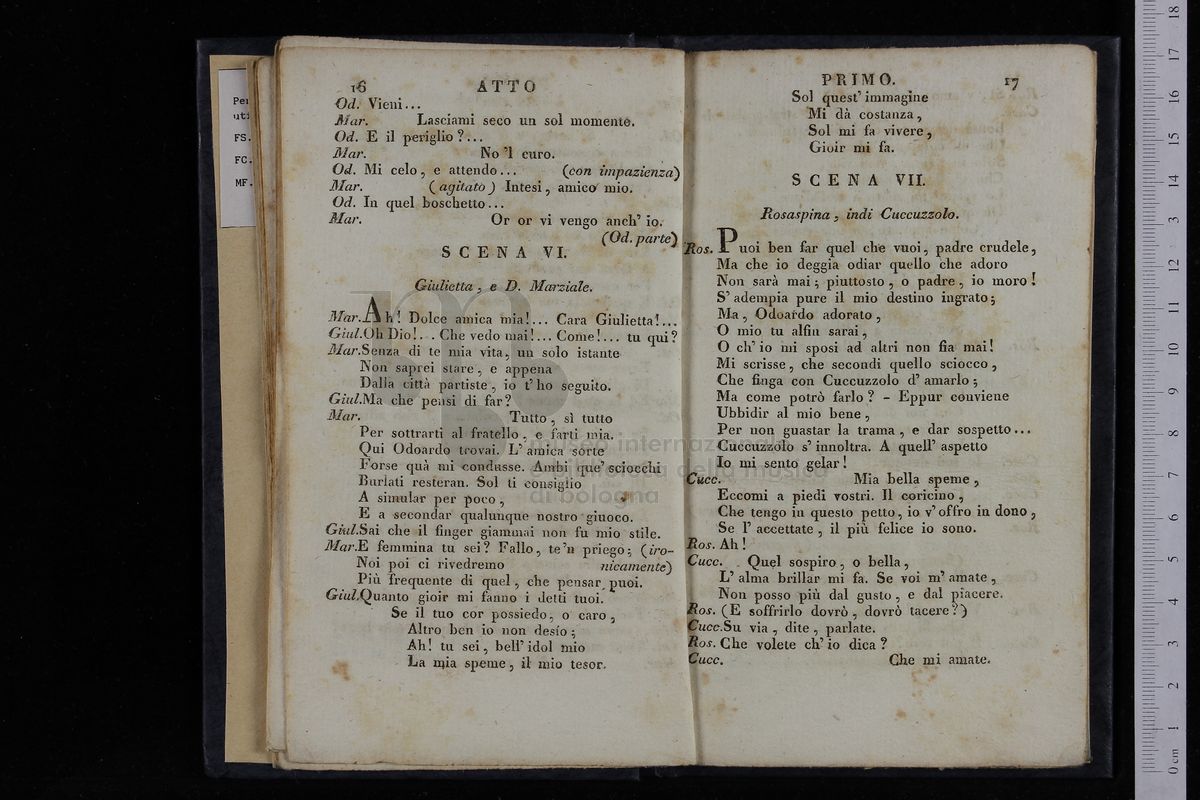 16 ATTO
Od. Vieni...
Mar. Lasciami seco un sol momento.
Od. E il periglio?...
Mar. No 'l curo.
Od. Mi celo, e attendo... (con impazienza)
Mar. (agitato) Intesi, amico mio.
Od. In quel boschetto...
Mar. Or or vi vengo anch' io.
(Od. parte)
SCENA VI.
Giulietta, e D. Marziale.
Mar. Ah! Dolce amica mia!... Cara Giulietta!...
Giul. Oh Dio!... Che vedo mai!... Come!... tu qui?
Mar. Senza di te mia vita, un solo istante
Non saprei stare, e appena
Dalla città partiste, io t' ho seguito.
Giul. Ma che pensi di far?
Mar. Tutto, sì tutto
Per sottrarti al fratello, e farti mia.
Qui Odoardo trovai. L' amica sorte
Forse quà mi condusse. Ambi que' sciocchi
Burlati resteran. Sol ti consiglio
A simular per poco,
E a secondar qualunque nostro giuoco.
Giul. Sai che il finger giammai non fu mio stile.
Mar. E femmina tu sei? Fallo, te 'n priego; (iro-
Noi poi ci rivedremo nicamente)
Più frequente di quel, che pensar puoi.
Giul. Quanto gioir mi fanno i detti tuoi.
Se il tuo cor possiedo, o caro,
Altro ben io non desío;
Ah! tu sei, bell' idol mio
La mia speme, il mio tesor.
PRIMO. 17
Sol quest' immagine
Mi dà costanza,
Sol mi fa vivere,
Gioir mi fa.
SCENA VII.
Rosaspina, indi Cuccuzzolo.
Ros. Puoi ben far quel che vuoi, padre crudele,
Ma che io deggia odiar quello che adoro
Non sarà mai; piuttosto, o padre, io moro!
S' adempia pure il mio destino ingrato;
Ma, Odoardo adorato,
O mio tu alfin sarai,
O ch' io mi sposi ad altri non fia mai!
Mi scrisse, che secondi quello sciocco,
Che finga con Cuccuzzolo d' amarlo;
Ma come potrò farlo? - Eppur conviene
Ubbidir al mio bene,
Per non guastar la trama, e dar sospetto...
Cuccuzzolo s' innoltra. A quell' aspetto
Io mi sento gelar!
Cucc. Mia bella speme,
Eccomi a piedi vostri. Il coricino,
Che tengo in questo petto, io v' offro in dono,
Se l' accettate, il più felice io sono.
Ros. Ah!
Cucc. Quel sospiro, o bella,
L' alma brillar mi fa. Se voi m' amate,
Non posso più dal gusto, e dal piacere.
Ros. (E soffrirlo dovrò, dovrò tacere?)
Cucc. Su via, dite, parlate.
Ros. Che volete ch' io dica?
Cucc. Che mi amate.
FS.
FC.
MF.
museo internazionale
e biblioteca della musica
di bologna
0 cm 1 2 3 4 5 6 7 8 9 10 11 12 13 14 15 16 17 18